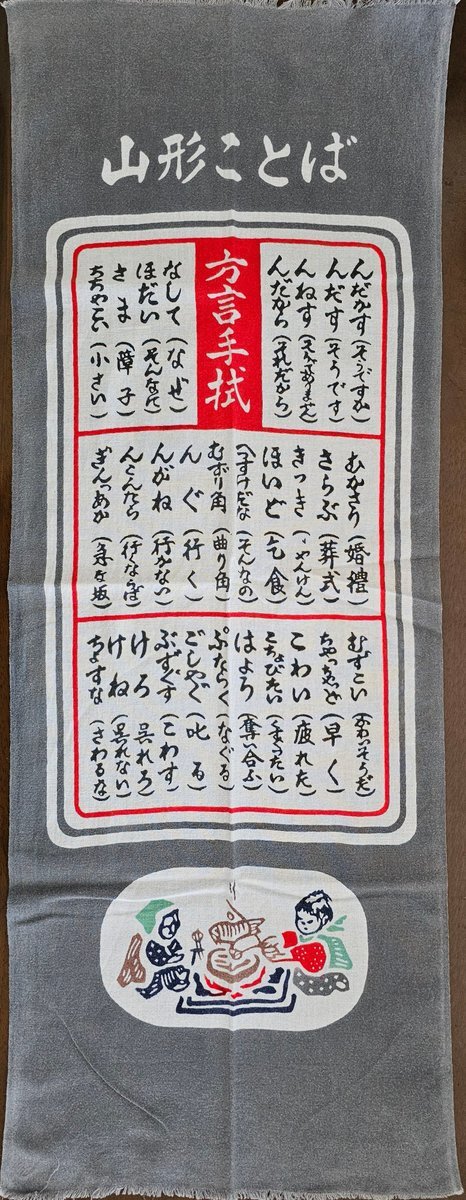 山形ことば
んだがす(そうですか)
んだす(そうです)
んねす
んだから(それだから)
方言手拭
なして(なぜ)
ほだい(そんなて)
さま(障子)
ちちゃこい(小さい)
むかさり(婚禮)
さらぶ(葬式)
きっき(じゃんけん)
ほいど(乞食)
(そんなの)
むずり角(曲り角)
んぐ(行く)
んがね(行かない)
(行ならば)
(急な坂)
むずこい(かわいそうだ)
ちゃっちゃど(早く)
こわい(疲れた)
こちょびたい(くすぐったい)
はよろ(奪い合ふ)
ぷならぐ(なぐる)
ごしゃぐ(叱る)
ぶずぐす(こわす)
けろ(呉れろ)
けね(呉れない)
ちょすな(さわるな)